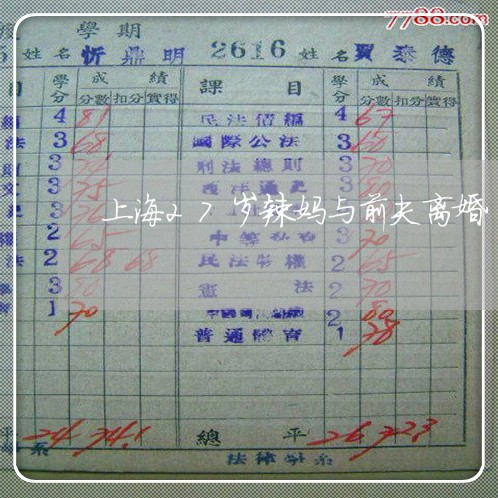 7788.com
學期
姓名 忻鼎明 2616 姓名 賈泰德
目 學分 成績 課目 學分 成績
分數 扣分 實得 分數 扣分 實得
4 81 民法債編 4 67
法 3 68 國際公法 3 60
3 刑法總則 3 70
3 75 3
上海27岁辣妈与前夫离婚
2 65 3 70
法 2 68 68 民法物權 2 65
3 80 憲法 2 70
1 70 2 80
普通體育 1 78
平 24 74.1 總平 26 72.3
系 法律學系